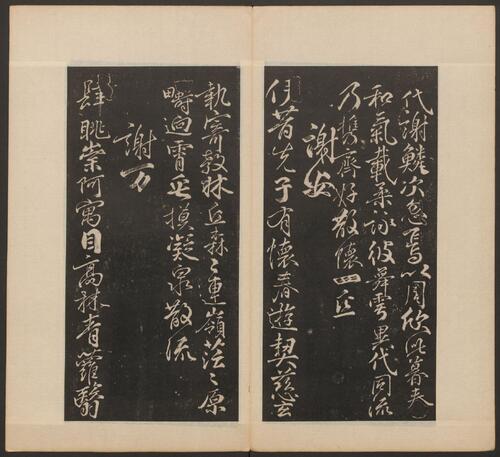 代謝鱗次忽焉以周欣此暮春
和氣載柔詠彼舞雩異代同流
乃携齊好散懷一丘
謝安
伊昔先子有懷春遊契茲言
執寄敖林丘森々連嶺茫々原
疇迥霄垂霧凝泉散流
謝万
肆眺崇阿寓目高林青蘿翳